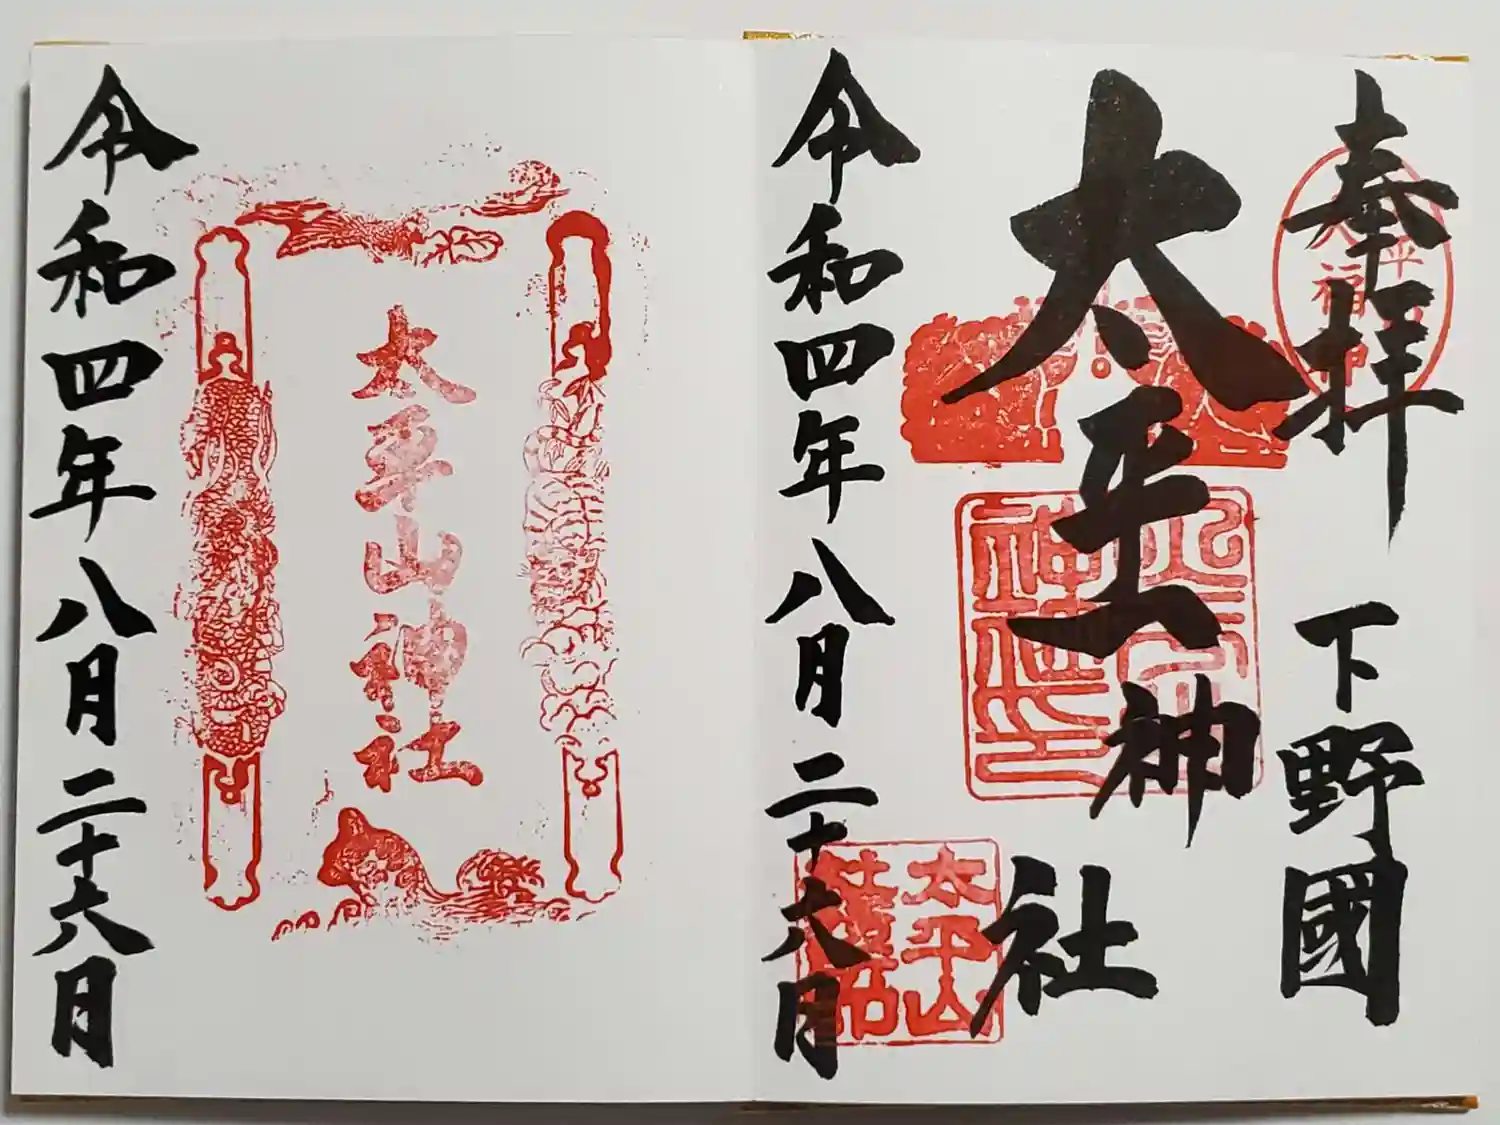 奉拝 下野國
太平山神社
太平山
令和四年八月二十六日
太平山神社
令和四年八月二十六日